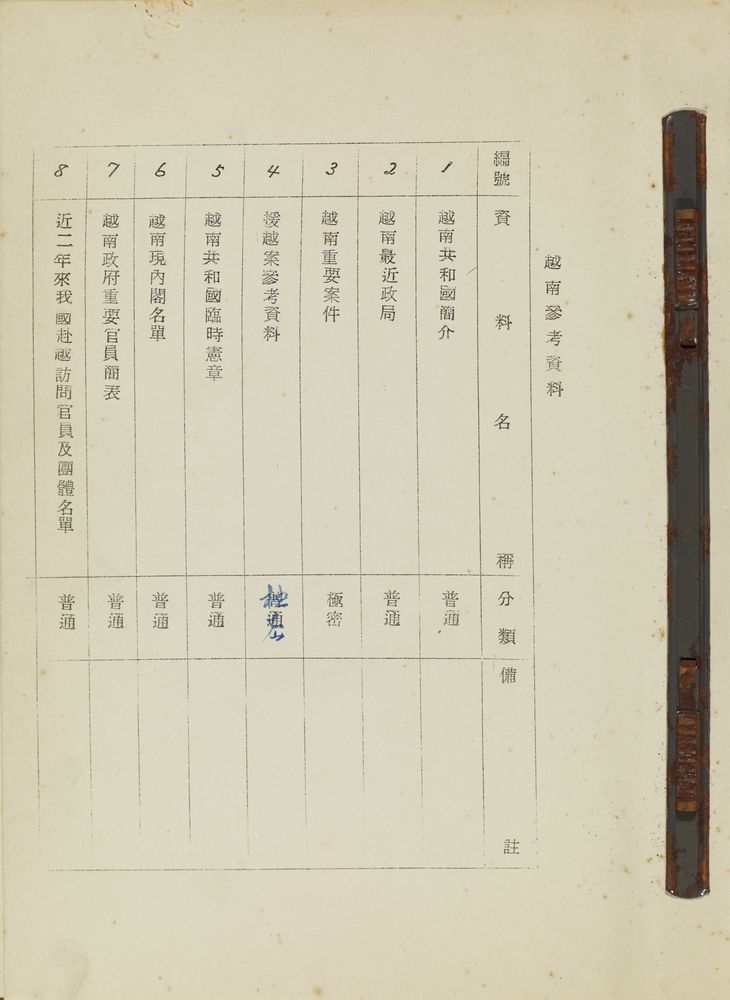 越南參考資料
編號 資料名稱 分類 備註
1 越南共和國簡介 普通
2 越南最近政局 普通
3 越南重要案件 極密
4 援越案參考資料 普通 極密
5 越南共和國臨時憲章 普通
6 越南現內閣名單 普通
7 越南政府重要官員簡表 普通
8 近二年來我國赴越訪問官員及團體名單 普通